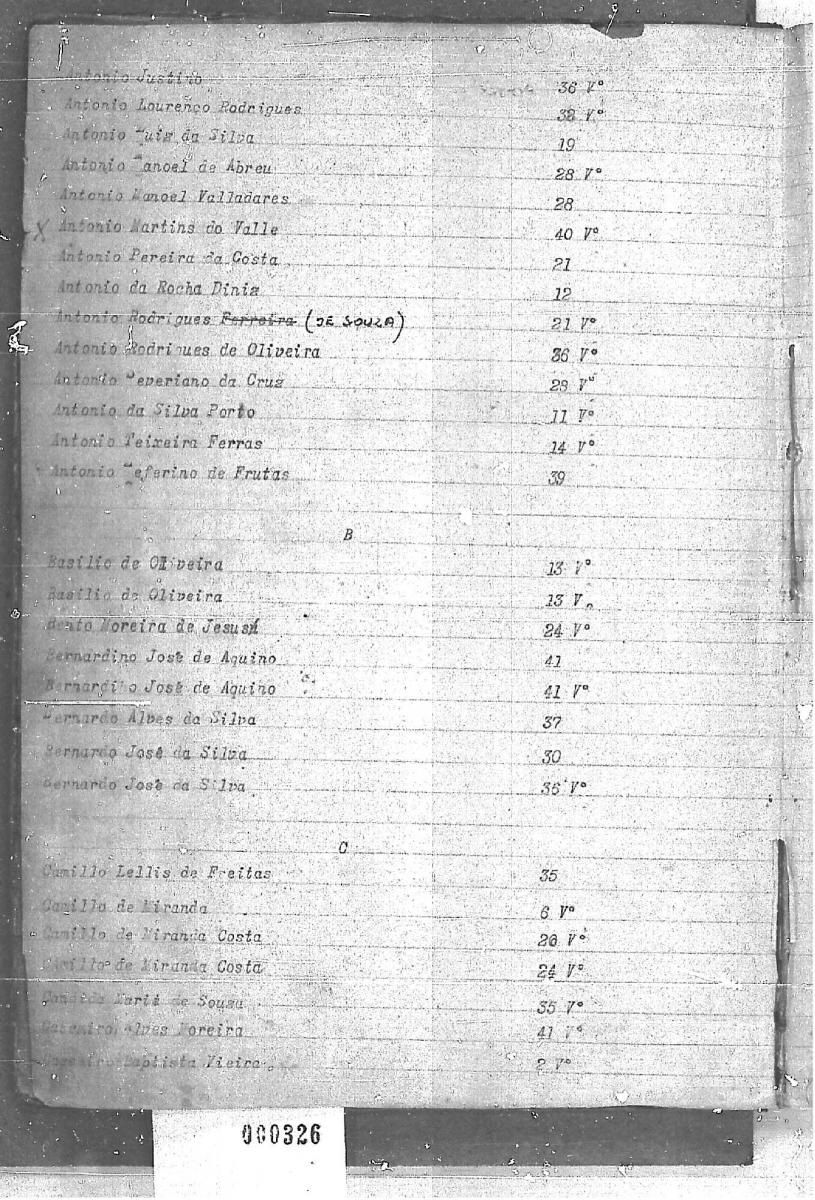 Antonio Justino 36 Vº
Antonio Lourenço Rodrigues 38 Vº
Antonio Luis da Silva 19
Antonio Manoel de Abreu 28 Vº
Antonio Manoel Valladares 28
X Antonio Martins do Valle 40 Vº
Antonio Pereira da Costa 21
Antonio da Rocha Dinis 12
Antonio Rodrigues Ferreira (DE SOUZA) 21 Vº
Antonio Rodrigues de Oliveira 36 Vº
Antonio Severiano da Cruz Vº
Antonio da Silva Porto 11 Vº
Antonio Teixeira Ferras 14 Vº
Antonio Zeferino de Frutas 39
B
Basilio de Oliveira 13 Vº
Basilio de Oliveira 13 V
Bento Moreira de Jesus 24 Vº
Bernardino José de Aquino 41
Bernardino José de Aquino 41 Vº
Bernardo Alves da Silva 37
Bernardo José da Silva 30
Bernardo José da Silva 36 Vº
C
Camillo Lellis de Freitas 35
Camillo de Miranda 6 Vº
Camillo de Miranda Costa Vº
Camillo de Miranda Costa 24 Vº
Candida Maria de Sousa 35 Vº
Casemiro Alves Moreira 41 Vº
Casemiro Baptista Vieira 2 Vº
000326